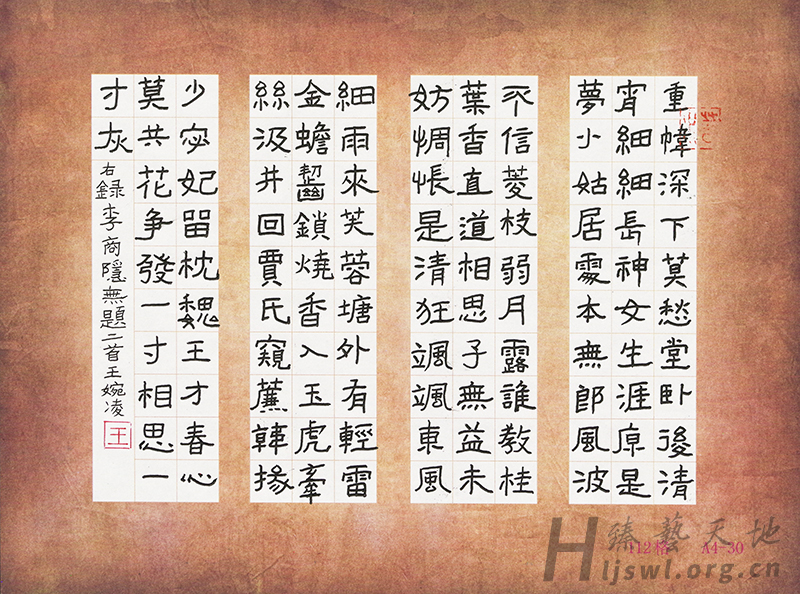 重幃深下莫愁堂卧後清
宵細細長神女生涯原是
夢小姑居處本無郎風波
不信菱枝弱月露誰教桂
葉香直道相思子無益未
妨惆悵是清狂颯颯東風
細雨來芙蓉塘外有輕雷
金蟾齧鎖燒香入玉虎牽
絲汲井回賈氏窺薕韓掾
少宓妃留枕魏王才春心
莫共花争發一寸相思一
寸灰
右録李商隱無題二首王婉凌
王
臻藝天地
Hljswl.org.cn
112格 A4-30